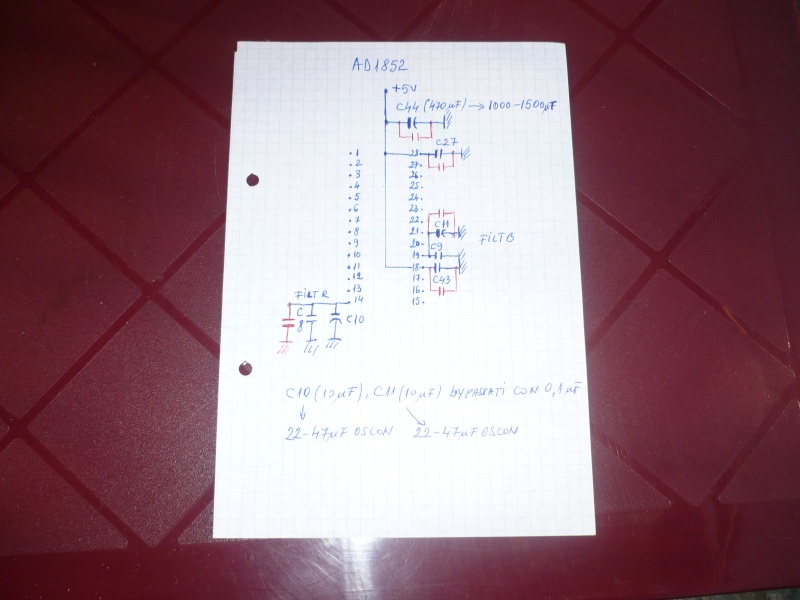 AD1852
+5V
C44 (470µF) → 1000-1500µF
C27
.1 28
.2 27.
.3 26.
.4 25.
.5 24.
.6 23.
.7 22.
.8 21.
.9 20.
.10 19
.11 18
.12 17.
.13 16
14 15.
C11
FILTB
C9
C43
FILTR
C8
C10
C10 (10µF), C11 (10µF) BYPASSATI CON 0,1µF
22-47µF OSCON 22-47µF OSCON